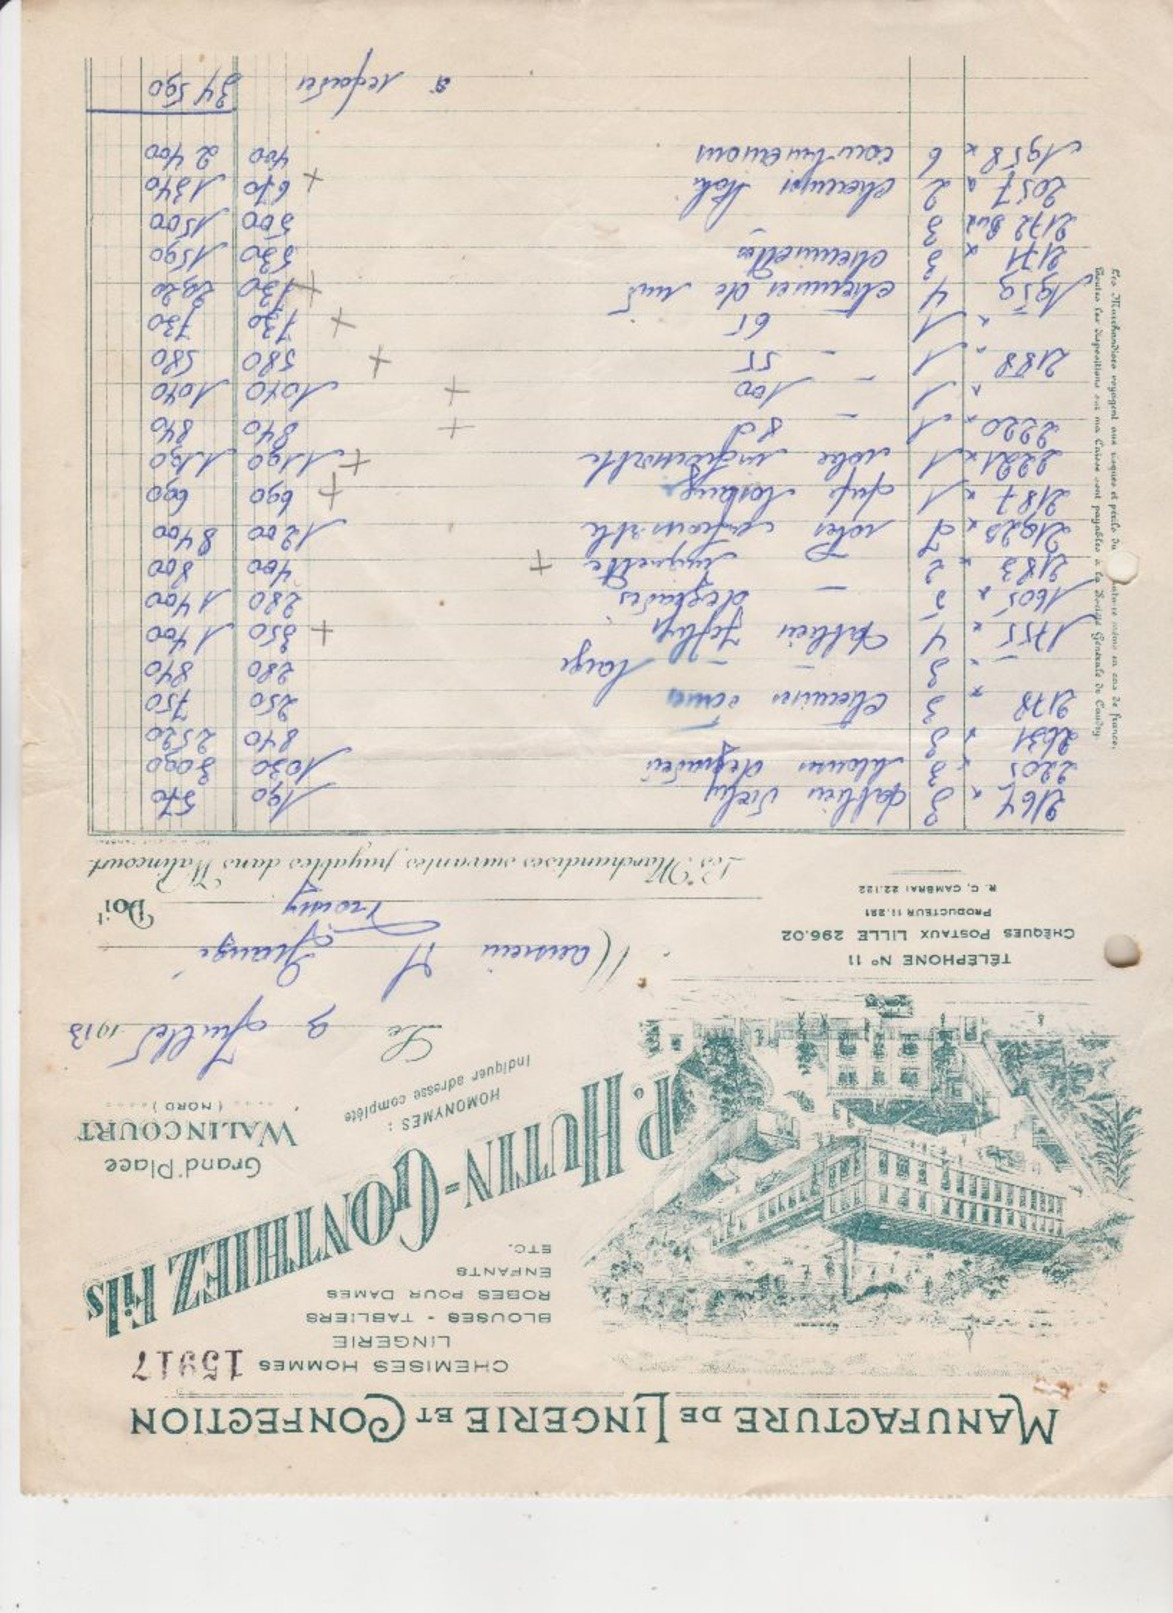 MANUFACTURE DE LINGERIE ET CONFECTION
CHEMISES HOMMES 15917
LINGERIE
BLOUSES - TABLIERS
ROBES POUR DAMES
ENFANTS
ETC.
P. HUTIN-GONTHIEZ Fils
HOMONYMES :
Indiquer adresse complète
Grand'Place
WALINCOURT
( NORD )
Le 2 Juillet 1953
TÉLÉPHONE N° 11
CHÈQUES POSTAUX LILLE 296.02
PRODUCTEUR 11.281
R. C. CAMBRAI 22.122
Monsieur H
Doit
Les Marchandises suivantes, payables dans Walincourt
3 tablier Vichy 190 570
2205 3 blouses 1030 3090
2631 3 840 2520
2178 3 chemises 250 750
3 - - large 280 840
1755 4 tablier 350 1400
1605 5 - 280 1400
2183 2 400 800
7 robes 1200 8400
2187 1 690 690
2221 1 robe 1190 1190
2220 1 - 840 840
1 100 1040 1040
2188 1 - 55 580 580
1 65 730 730
1959 4 chemises de nuit 730 2920
2171 3 chemisettes 530 1590
2172 3 500 1500
2057 2 670 1340
1958 6 combinaisons 400 2400
à reporter 34 590
Les Marchandises voyagent aux risques et périls du même en cas de franco,
toutes les dispositions sur ma Caisse sont payables à la Société Générale de Caudry.